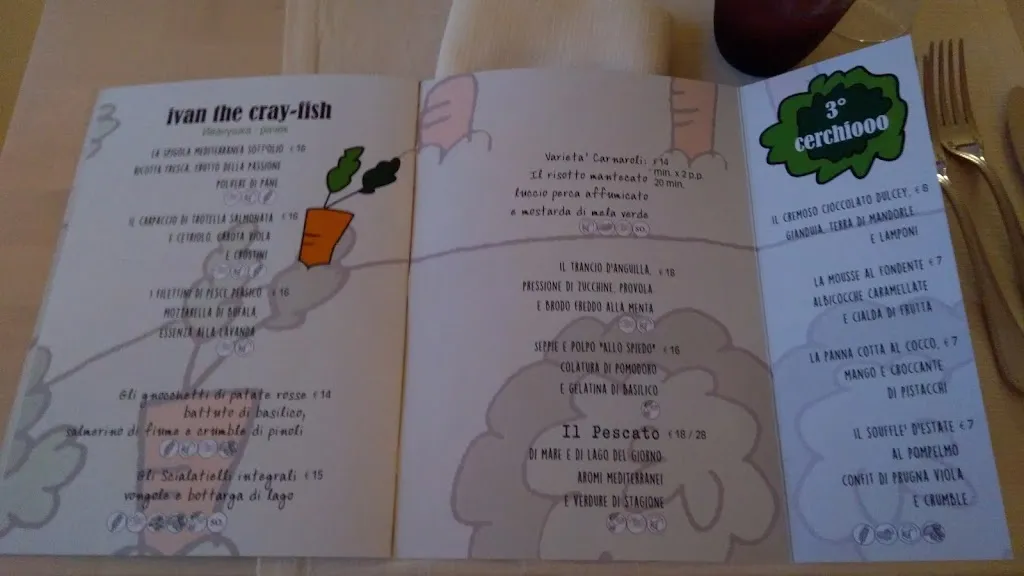 ivan the cray-fish
LA SPIGOLA MEDITERRANEA SOTT'OLIO € 16
RICOTTA FRESCA, FRUTTO DELLA PASSIONE
POLVERE DI PANE
IL CARPACCIO DI TROTELLA SALMONATA € 16
E CETRIOLO, CAROTA VIOLA
E CROSTINI
I FILETTINI DI PESCE PERSICO € 16
MOZZARELLA DI BUFALA
ESSENZA ALLA LAVANDA
Gli gnocchetti di patate rosse € 14
battuto di basilico,
salmerino di fiume e crumble di pinoli
Gli Scialatielli integrali € 15
vongole e bottarga di lago
Varieta' Carnaroli: € 14
min. x 2 p.p.
Il risotto mantecato 20 min.
luccio perca affumicato
e mostarda di mela verde
IL TRANCIO D'ANGUILLA, € 18
PRESSIONE DI ZUCCHINE, PROVOLA
E BRODO FREDDO ALLA MENTA
SEPPIE E POLPO "ALLO SPIEDO" € 16
COLATURA DI POMODORO
E GELATINA DI BASILICO
Il Pescato € 18 / 28
DI MARE E DI LAGO DEL GIORNO
AROMI MEDITERRANEI
E VERDURE DI STAGIONE
3°
cerchiooo
IL CREMOSO CIOCCOLATO DULCEY, € 6
GIANDUIA, TERRA DI MANDORLE
E LAMPONI
LA MOUSSE AL FONDENTE € 7
ALBICOCCHE CARAMELLATE
E CIALDA DI FRUTTA
LA PANNA COTTA AL COCCO, € 7
MANGO E CROCCANTE
DI PISTACCHI
IL SOUFFLE' D'ESTATE € 7
AL POMPELMO
CONFIT DI PRUGNA VIOLA
E CRUMBLE